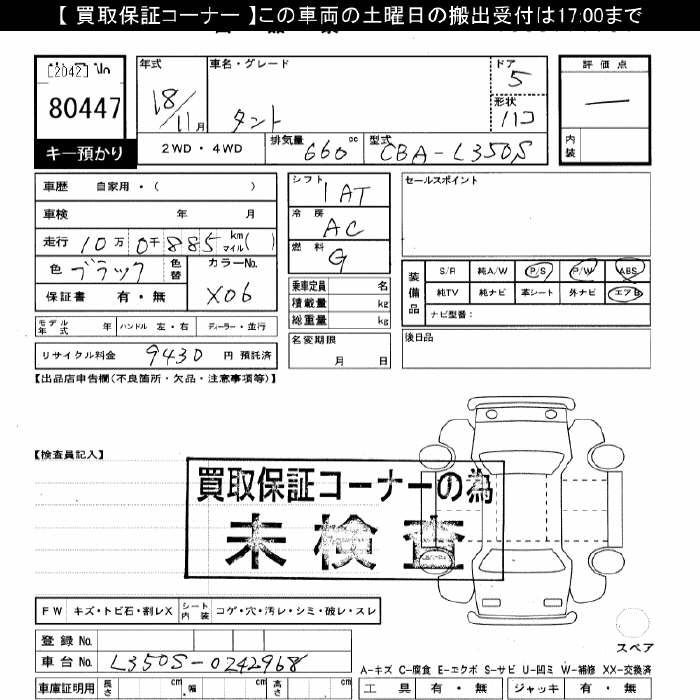 【 買取保証コーナー 】この車両の土曜日の搬出受付は17:00まで
[2042]
80447
キー預かり
年式
18/11月
車名・グレード
タント
ドア
5
形状
ハコ
評価点
―
内装
2WD・4WD
排気量 660 cc
型式 CBA-L350S
車歴 自家用・( )
車検 年 月
走行 10万0千885 km マイル( )
色 ブラック 色替
カラーNo.
X06
保証書 有・無
モデル年式 年 ハンドル 左・右 ディーラー・並行
リサイクル料金 9430 円 預託済
シフト
IAT
冷房
AC
燃料
G
乗車定員 名
積載量 kg
総重量 kg
名変期限
月 日
セールスポイント
装備品
S/R 純A/W P/S P/W ABS
純TV 純ナビ 革シート 外ナビ エアB
ナビ型番:
後日品
【出品店申告欄(不良箇所・欠品・注意事項等)】
【検査員記入】
買取保証コーナーの為
未検査
FW キズ・トビ石・割レX シート内装 コゲ・穴・汚レ・シミ・破レ・スレ
登録No.
車台No. L350S-0242968
車庫証明用 長さ cm 幅 cm 高さ cm
スペア
A-キズ C-腐食 E-エクボ S-サビ U-凹ミ W-補修 XX-交換済
工具 有・無 ジャッキ 有・無